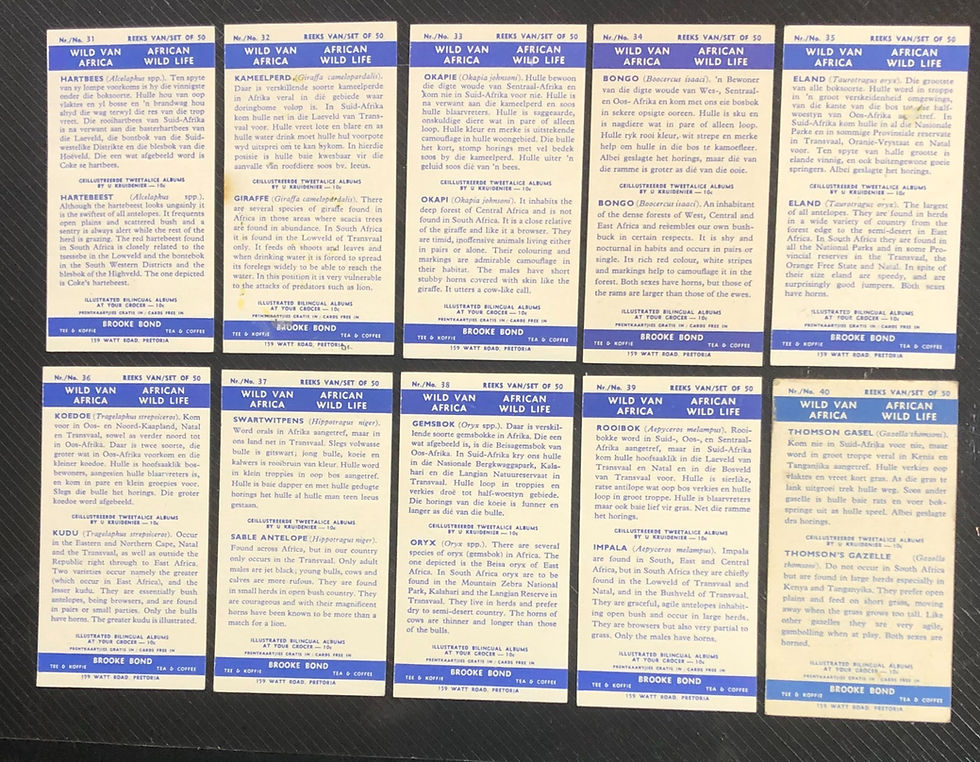 Nr./No. 31 REEKS VAN/SET OF 50
WILD VAN AFRICAN
AFRICA WILD LIFE
HARTBEES (Alcelaphus spp.). Ten spyte
van sy lompe voorkoms is hy die vinnigste
onder die boksoorte. Hulle hou van oop
vlaktes en yl bosse en 'n brandwag hou
altyd die wag terwyl die res van die trop
vreet. Die rooihartbees van Suid-Afrika
is na verwant aan die basterhartbees van
die Laeveld, die bontbok van die Suid-
westelike Distrikte en die blesbok van die
Hoëveld. Die een wat afgebeeld word is
Coke se hartbees.
GEILLUSTREERDE TWEETALIGE ALBUMS
BY U KRUIDENIER — 10c
HARTEBEEST (Alcelaphus spp.).
Although the hartebeest looks ungainly it
is the swiftest of all antelopes. It frequents
open plains and scattered bush and a
sentry is always alert while the rest of the
herd is grazing. The red hartebeest found
in South Africa is closely related to the
tsessebe in the Lowveld and the bontebok
in the South Western Districts and the
blesbok of the Highveld. The one depicted
is Coke's hartebeest.
ILLUSTRATED BILINGUAL ALBUMS
AT YOUR GROCER — 10c
PRENTKAARTJIES GRATIS IN : CARDS FREE IN
BROOKE BOND
TEE & KOFFIE TEA & COFFEE
159 WATT ROAD, PRETORIA
Nr./No. 32 REEKS VAN/SET OF 50
WILD VAN AFRICAN
AFRICA WILD LIFE
KAMEELPERD (Giraffa camelopardalis).
Daar is verskillende soorte kameelperde
in Afrika veral in dié gebiede waar
doringbome volop is. In Suid-Afrika
kom hulle net in die Laeveld van Trans-
vaal voor. Hulle vreet lote en blare en as
hulle water drink moet hulle hul voorpote
wyd uitsprei om te kan bykom. In hierdie
posisie is hulle baie kwesbaar vir die
aanvalle van roofdiere soos bv. leeus.
GEILLUSTREERDE TWEETALIGE ALBUMS
BY U KRUIDENIER — 10c
GIRAFFE (Giraffa camelopardalis). There
are several species of giraffe found in
Africa in those areas where acacia trees
are found in abundance. In South Africa
it is found in the Lowveld of Transvaal
only. It feeds on shoots and leaves and
when drinking water it is forced to spread
its forelegs widely to be able to reach the
water. In this position it is very vulnerable
to the attacks of predators such as lion.
ILLUSTRATED BILINGUAL ALBUMS
AT YOUR GROCER — 10c
PRENTKAARTJIES GRATIS IN : CARDS FREE IN
BROOKE BOND
TEE & KOFFIE TEA & COFFEE
159 WATT ROAD, PRETORIA
Nr./No. 33 REEKS VAN/SET OF 50
WILD VAN AFRICAN
AFRICA WILD LIFE
OKAPIE (Okapia johnsoni). Hulle bewoon
die digte woude van Sentraal-Afrika en
kom nie in Suid-Afrika voor nie. Hulle is
na verwant aan die kameelperd en is soos
hulle blaarvreters. Hulle is saggeaarde,
onskuldige diere wat in pare of alleen
loop. Hulle kleur en merke is uitstekende
camouflage in hulle woongebied. Die bulle
het kort, stomp horings met vel bedek
soos by die kameelperd. Hulle uiter 'n
geluid soos dié van 'n bees.
GEILLUSTREERDE TWEETALIGE ALBUMS
BY U KRUIDENIER — 10c
OKAPI (Okapia johnsoni). It inhabits the
deep forest of Central Africa and is not
found in South Africa. It is a close relative
of the giraffe and like it a browser. They
are timid, inoffensive animals living either
in pairs or alone. Their colouring and
markings are admirable camouflage in
their habitat. The males have short
stubby horns covered with skin like the
giraffe. It utters a cow-like call.
ILLUSTRATED BILINGUAL ALBUMS
AT YOUR GROCER — 10c
PRENTKAARTJIES GRATIS IN : CARDS FREE IN
BROOKE BOND
TEE & KOFFIE TEA & COFFEE
159 WATT ROAD, PRETORIA
Nr./No. 34 REEKS VAN/SET OF 50
WILD VAN AFRICAN
AFRICA WILD LIFE
BONGO (Boocercus isaaci). 'n Bewoner
van die digte woude van Wes-, Sentraal-
en Oos- Afrika en kom met ons eie bosbok
in sekere opsigte ooreen. Hulle is sku en
is nagdiere wat in pare of alleen loop.
Hulle ryk rooi kleur, wit strepe en merke
help om hulle in die bos te kamoefleer.
Albei geslagte het horings, maar dié van
die ramme is groter as dié van die ooie.
GEILLUSTREERDE TWEETALIGE ALBUMS
BY U KRUIDENIER — 10c
BONGO (Boocercus isaaci). An inhabitant
of the dense forests of West, Central and
East Africa and resembles our own bush-
buck in certain respects. It is shy and
nocturnal in habits and occurs in pairs or
single. Its rich red colour, white stripes
and markings help to camouflage it in the
forest. Both sexes have horns, but those of
the rams are larger than those of the ewes.
ILLUSTRATED BILINGUAL ALBUMS
AT YOUR GROCER — 10c
PRENTKAARTJIES GRATIS IN : CARDS FREE IN
BROOKE BOND
TEE & KOFFIE TEA & COFFEE
159 WATT ROAD, PRETORIA
Nr./No. 35 REEKS VAN/SET OF 50
WILD VAN AFRICAN
AFRICA WILD LIFE
ELAND (Taurotragus oryx). Die grootste
van alle boksoorte. Hulle word in troppe
in 'n groot verskeidenheid omgewings,
van die kante van die bos tot die half-
woestyn van Oos-Afrika aangetref. In
Suid-Afrika kom hulle in al die Nasionale
Parke en in sommige Provinsiale reservate
in Transvaal, Oranje-Vrystaat en Natal
voor. Ten spyte van hulle grootte is
elande vinnig, en ook buitengewone goeie
springers. Albei geslagte het horings.
GEILLUSTREERDE TWEETALIGE ALBUMS
BY U KRUIDENIER — 10c
ELAND (Taurotragus oryx). The largest
of all antelopes. They are found in herds
in a wide variety of country from the
forest edge to the semi-desert in East
Africa. In South Africa they are found in
all the National Parks and in some Pro-
vincial reserves in the Transvaal, the
Orange Free State and Natal. In spite of
their size eland are speedy, and are
surprisingly good jumpers. Both sexes
have horns.
ILLUSTRATED BILINGUAL ALBUMS
AT YOUR GROCER — 10c
PRENTKAARTJIES GRATIS IN : CARDS FREE IN
BROOKE BOND
TEE & KOFFIE TEA & COFFEE
159 WATT ROAD, PRETORIA
Nr./No. 36 REEKS VAN/SET OF 50
WILD VAN AFRICAN
AFRICA WILD LIFE
KOEDOE (Tragelaphus strepsiceros). Kom
voor in Oos- en Noord-Kaapland, Natal
en Transvaal, sowel as verder noord tot
in Oos-Afrika. Daar is twee soorte, die
groter wat in Oos-Afrika voorkom en die
kleiner koedoe. Hulle is hoofsaaklik bos-
bewoners, aangesien hulle blaarvreters is,
en kom in pare en klein groepies voor.
Slegs die bulle het horings. Die groter
koedoe word afgebeeld.
GEILLUSTREERDE TWEETALIGE ALBUMS
BY U KRUIDENIER — 10c
KUDU (Tragelaphus strepsiceros). Occur
in the Eastern and Northern Cape, Natal
and the Transvaal, as well as outside the
Republic right through to East Africa.
Two varieties occur namely the greater
(which occur in East Africa), and the
lesser kudu. They are essentially bush
antelopes, being browsers, and are found
in pairs or small parties. Only the bulls
have horns. The greater kudu is illustrated.
ILLUSTRATED BILINGUAL ALBUMS
AT YOUR GROCER — 10c
PRENTKAARTJIES GRATIS IN : CARDS FREE IN
BROOKE BOND
TEE & KOFFIE TEA & COFFEE
159 WATT ROAD, PRETORIA
Nr./No. 37 REEKS VAN/SET OF 50
WILD VAN AFRICAN
AFRICA WILD LIFE
SWARTWITPENS (Hippotragus niger).
Word orals in Afrika aangetref, maar in
ons land net in Transvaal. Slegs volwasse
bulle is gitswart; jong bulle, koeie en
kalwers is rooibruin van kleur. Hulle word
in klein troppies in oop bos aangetref.
Hulle is baie dapper en met hulle gedugte
horings het hulle al hulle man teen leeus
gestaan.
GEILLUSTREERDE TWEETALIGE ALBUMS
BY U KRUIDENIER — 10c
SABLE ANTELOPE (Hippotragus niger).
Found across Africa, but in our country
only occurs in the Transvaal. Only adult
males are jet black; young bulls, cows and
calves are more rufous. They are found
in small herds in open bush country. They
are courageous and with their magnificent
horns have been known to be more than a
match for a lion.
ILLUSTRATED BILINGUAL ALBUMS
AT YOUR GROCER — 10c
PRENTKAARTJIES GRATIS IN : CARDS FREE IN
BROOKE BOND
TEE & KOFFIE TEA & COFFEE
159 WATT ROAD, PRETORIA
Nr./No. 38 REEKS VAN/SET OF 50
WILD VAN AFRICAN
AFRICA WILD LIFE
GEMSBOK (Oryx spp.). Daar is verskil-
lende soorte gemsbokke in Afrika. Die een
wat afgebeeld is, is die Beisagemsbok van
Oos-Afrika. In Suid-Afrika kry ons hulle
in die Nasionale Bergkwaggapark, Kala-
hari en die Langjan Natuurreservaat in
Transvaal. Hulle loop in troppies en
verkies droë tot half-woestyn gebiede.
Die horings van die koeie is dunner en
langer as dié van die bulle.
GEILLUSTREERDE TWEETALIGE ALBUMS
BY U KRUIDENIER — 10c
ORYX (Oryx spp.). There are several
species of oryx (gemsbok) in Africa. The
one depicted is the Beisa oryx of East
Africa. In South Africa oryx are to be
found in the Mountain Zebra National
Park, Kalahari and the Langjan Reserve in
Transvaal. They live in herds and prefer
dry to semi-desert country. The horns of
cows are thinner and longer than those
of the bulls.
ILLUSTRATED BILINGUAL ALBUMS
AT YOUR GROCER — 10c
PRENTKAARTJIES GRATIS IN : CARDS FREE IN
BROOKE BOND
TEE & KOFFIE TEA & COFFEE
159 WATT ROAD, PRETORIA
Nr./No. 39 REEKS VAN/SET OF 50
WILD VAN AFRICAN
AFRICA WILD LIFE
ROOIBOK (Aepyceros melampus). Rooi-
bokke word in Suid-, Oos-, en Sentraal-
Afrika aangetref, maar in Suid-Afrika
kom hulle hoofsaaklik in die Laeveld van
Transvaal en Natal en in die Bosveld
van Transvaal voor. Hulle is sierlike,
ratse antilope wat oop bos verkies en hulle
loop in groot troppe. Hulle is blaarvreters
maar ook baie lief vir gras. Net die ramme
het horings.
GEILLUSTREERDE TWEETALIGE ALBUMS
BY U KRUIDENIER — 10c
IMPALA (Aepyceros melampus). Impala
are found in South, East and Central
Africa, but in South Africa they are chiefly
found in the Lowveld of Transvaal and
Natal, and in the Bushveld of Transvaal.
They are graceful, agile antelopes inhabit-
ing open bush and occur in large herds.
They are browsers but also very partial to
grass. Only the males have horns.
ILLUSTRATED BILINGUAL ALBUMS
AT YOUR GROCER — 10c
PRENTKAARTJIES GRATIS IN : CARDS FREE IN
BROOKE BOND
TEE & KOFFIE TEA & COFFEE
159 WATT ROAD, PRETORIA
Nr./No. 40 REEKS VAN/SET OF 50
WILD VAN AFRICAN
AFRICA WILD LIFE
THOMSON GASEL (Gazella thomsoni).
Kom nie in Suid-Afrika voor nie, maar
word in groot troppe veral in Kenia en
Tanganjika aangetref. Hulle verkies oop
vlaktes en vreet kort gras. As die gras te
lank uitgroei trek hulle weg. Soos ander
gaselle is hulle baie rats en voer bok-
springe uit as hulle speel. Albei geslagte
dra horings.
GEILLUSTREERDE TWEETALIGE ALBUMS
BY U KRUIDENIER — 10c
THOMSON'S GAZELLE (Gazella
thomsoni). Do not occur in South Africa
but are found in large herds especially in
Kenya and Tanganyika. They prefer open
plains and feed on short grass, moving
away when the grass grows too tall. Like
other gazelles they are very agile,
gambolling when at play. Both sexes are
horned.
ILLUSTRATED BILINGUAL ALBUMS
AT YOUR GROCER — 10c
PRENTKAARTJIES GRATIS IN : CARDS FREE IN
BROOKE BOND
TEE & KOFFIE TEA & COFFEE
159 WATT ROAD, PRETORIA